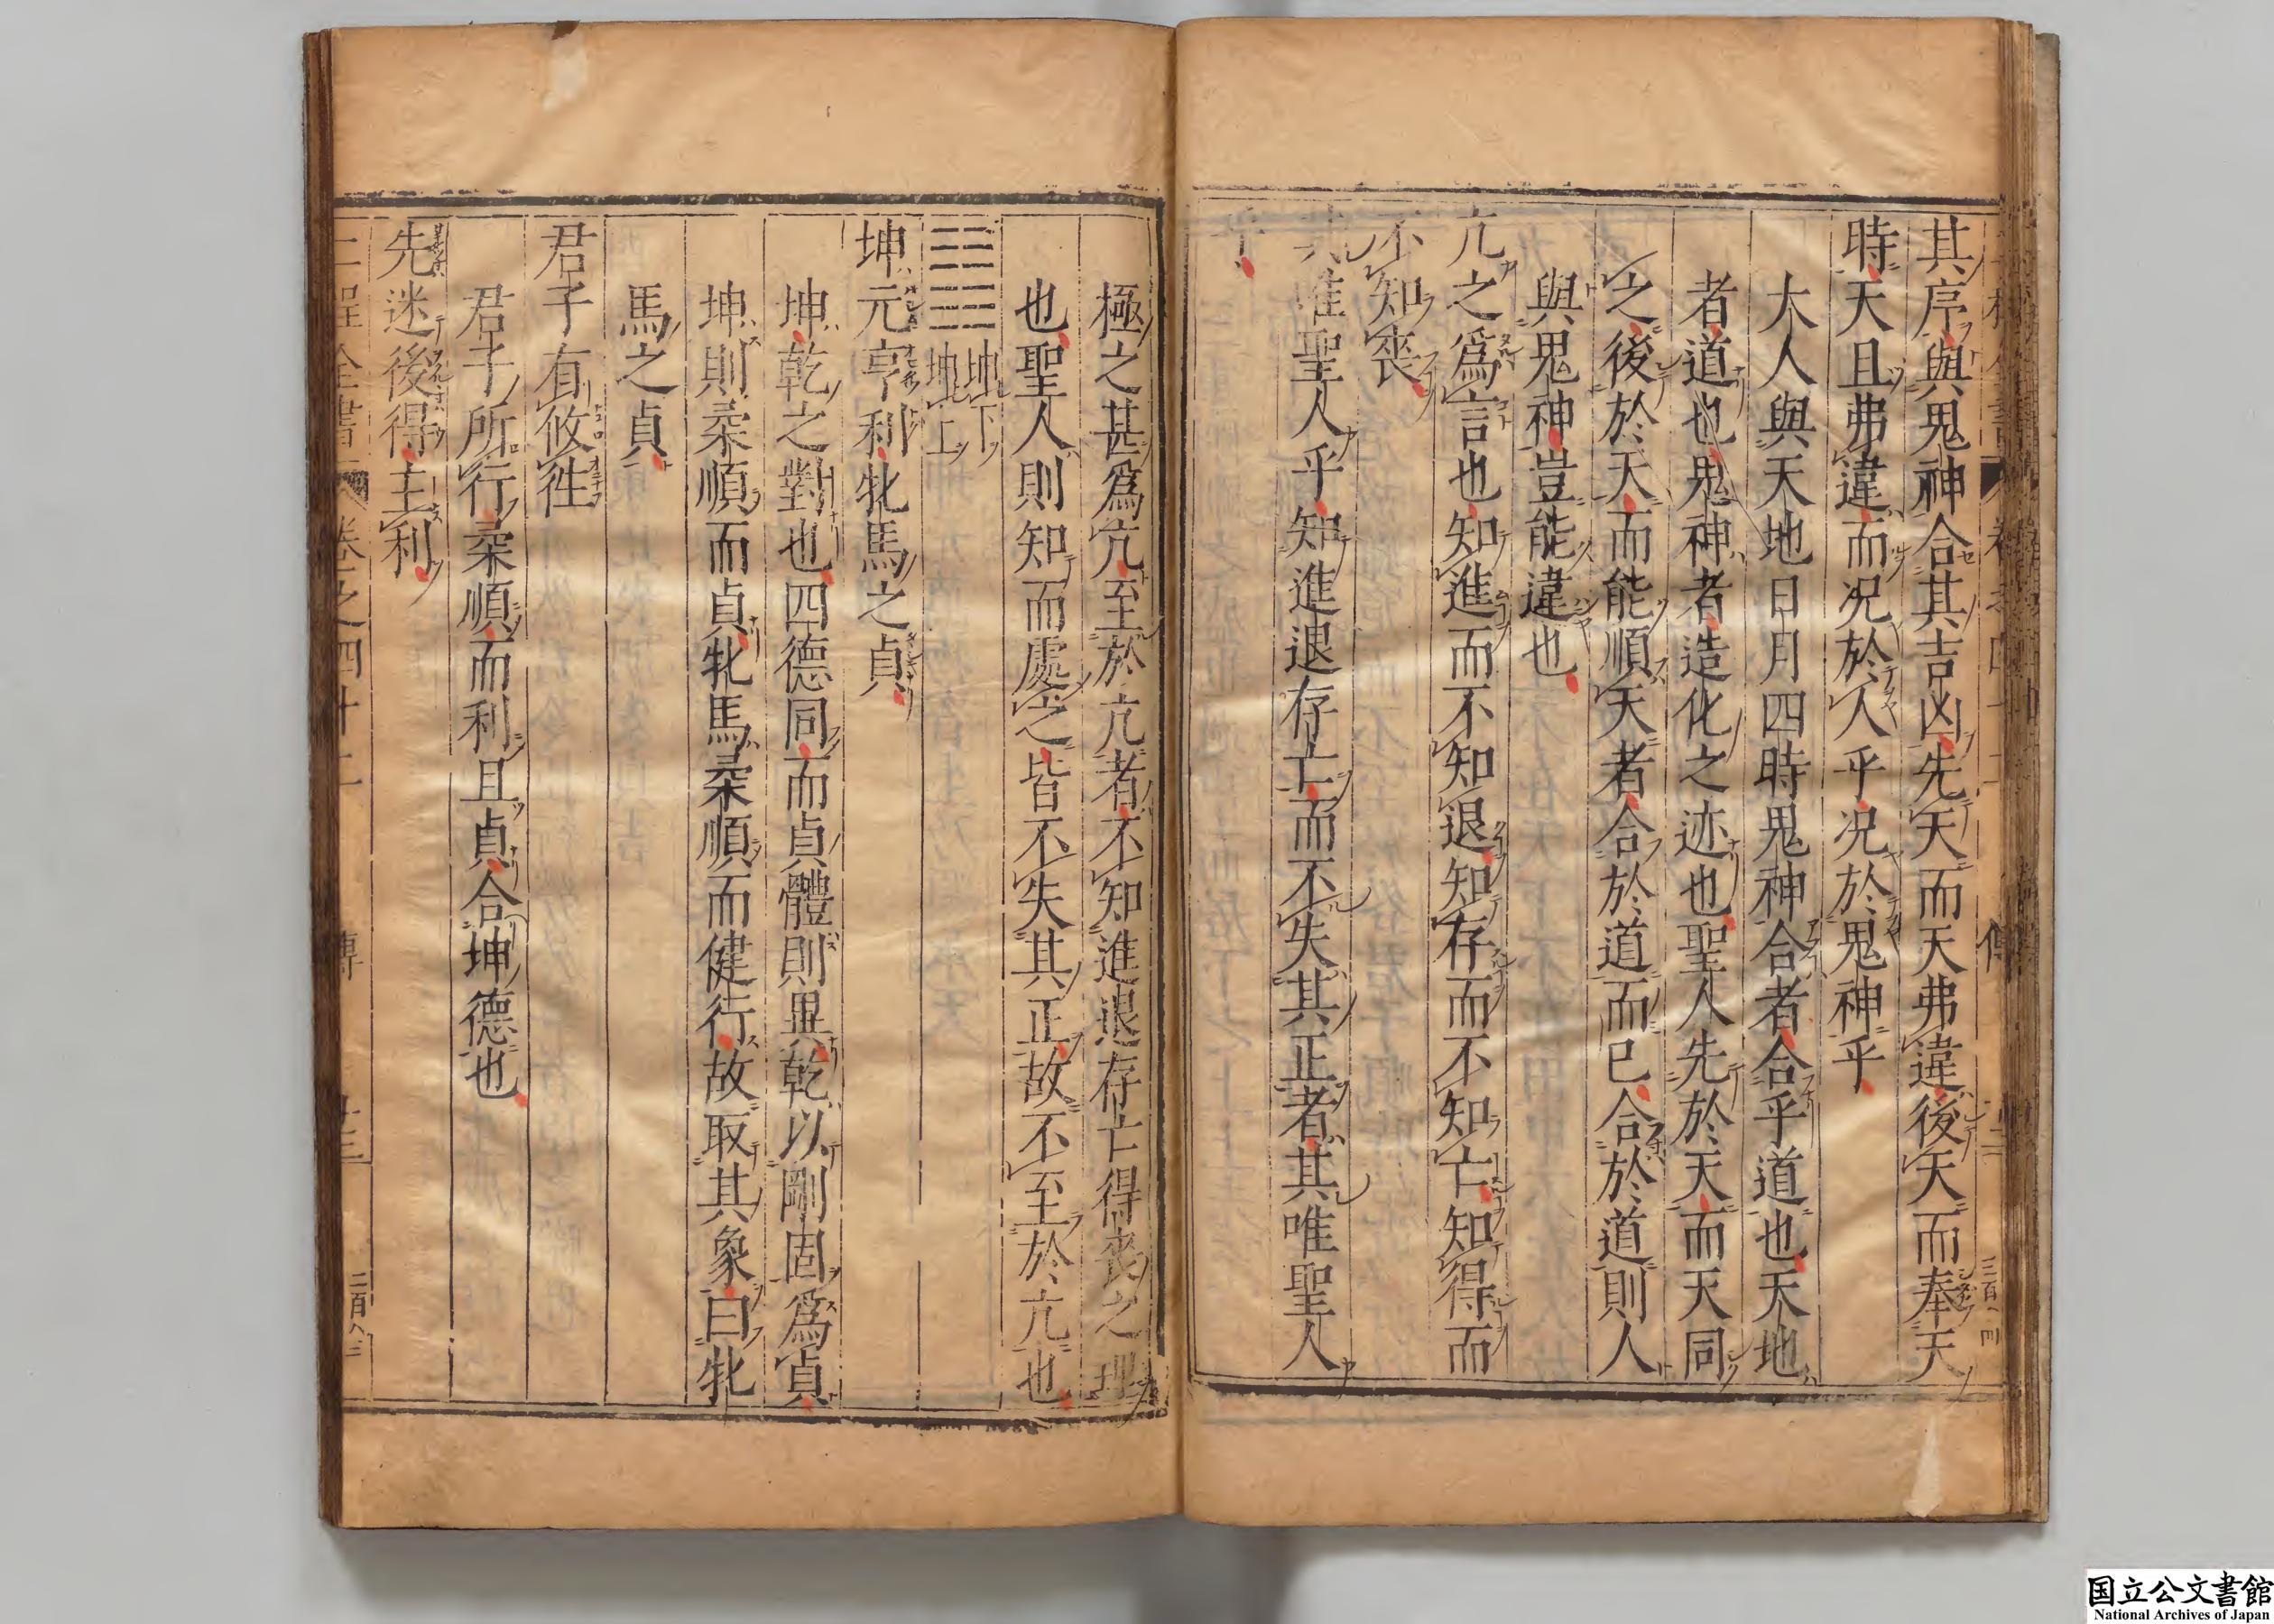 其序與鬼神合其吉凶先天而天弗違後天而奉天
時天且弗違而况於人乎况於鬼神乎
大人與天地日月四時鬼神合者合乎道也天地
者道也鬼神者造化之迹也聖人先於天而天同
之後於天而能順天者合於道而已合於道則人
與鬼神豈能違也
亢之爲言也知進而不知退知存而不知亡知得而
不知喪
其唯聖人乎知進退存亡而不失其正者其唯聖人
乎
極之甚爲亢至於亢者不知進退存亡得喪之理
也聖人則知而處之皆不失其正故不至於亢也
坤下
坤上
坤元亨利牝馬之貞
坤乾之對也四德同而貞體則異乾以剛固爲貞
坤則柔順而貞牝馬柔順而健行故取其象曰牝
馬之貞
君子有攸徃
君子所行柔順而利且貞合坤德也
先迷後得主利
二程全書
卷之四十二
傳
国立公文書館
National Archives of Japan